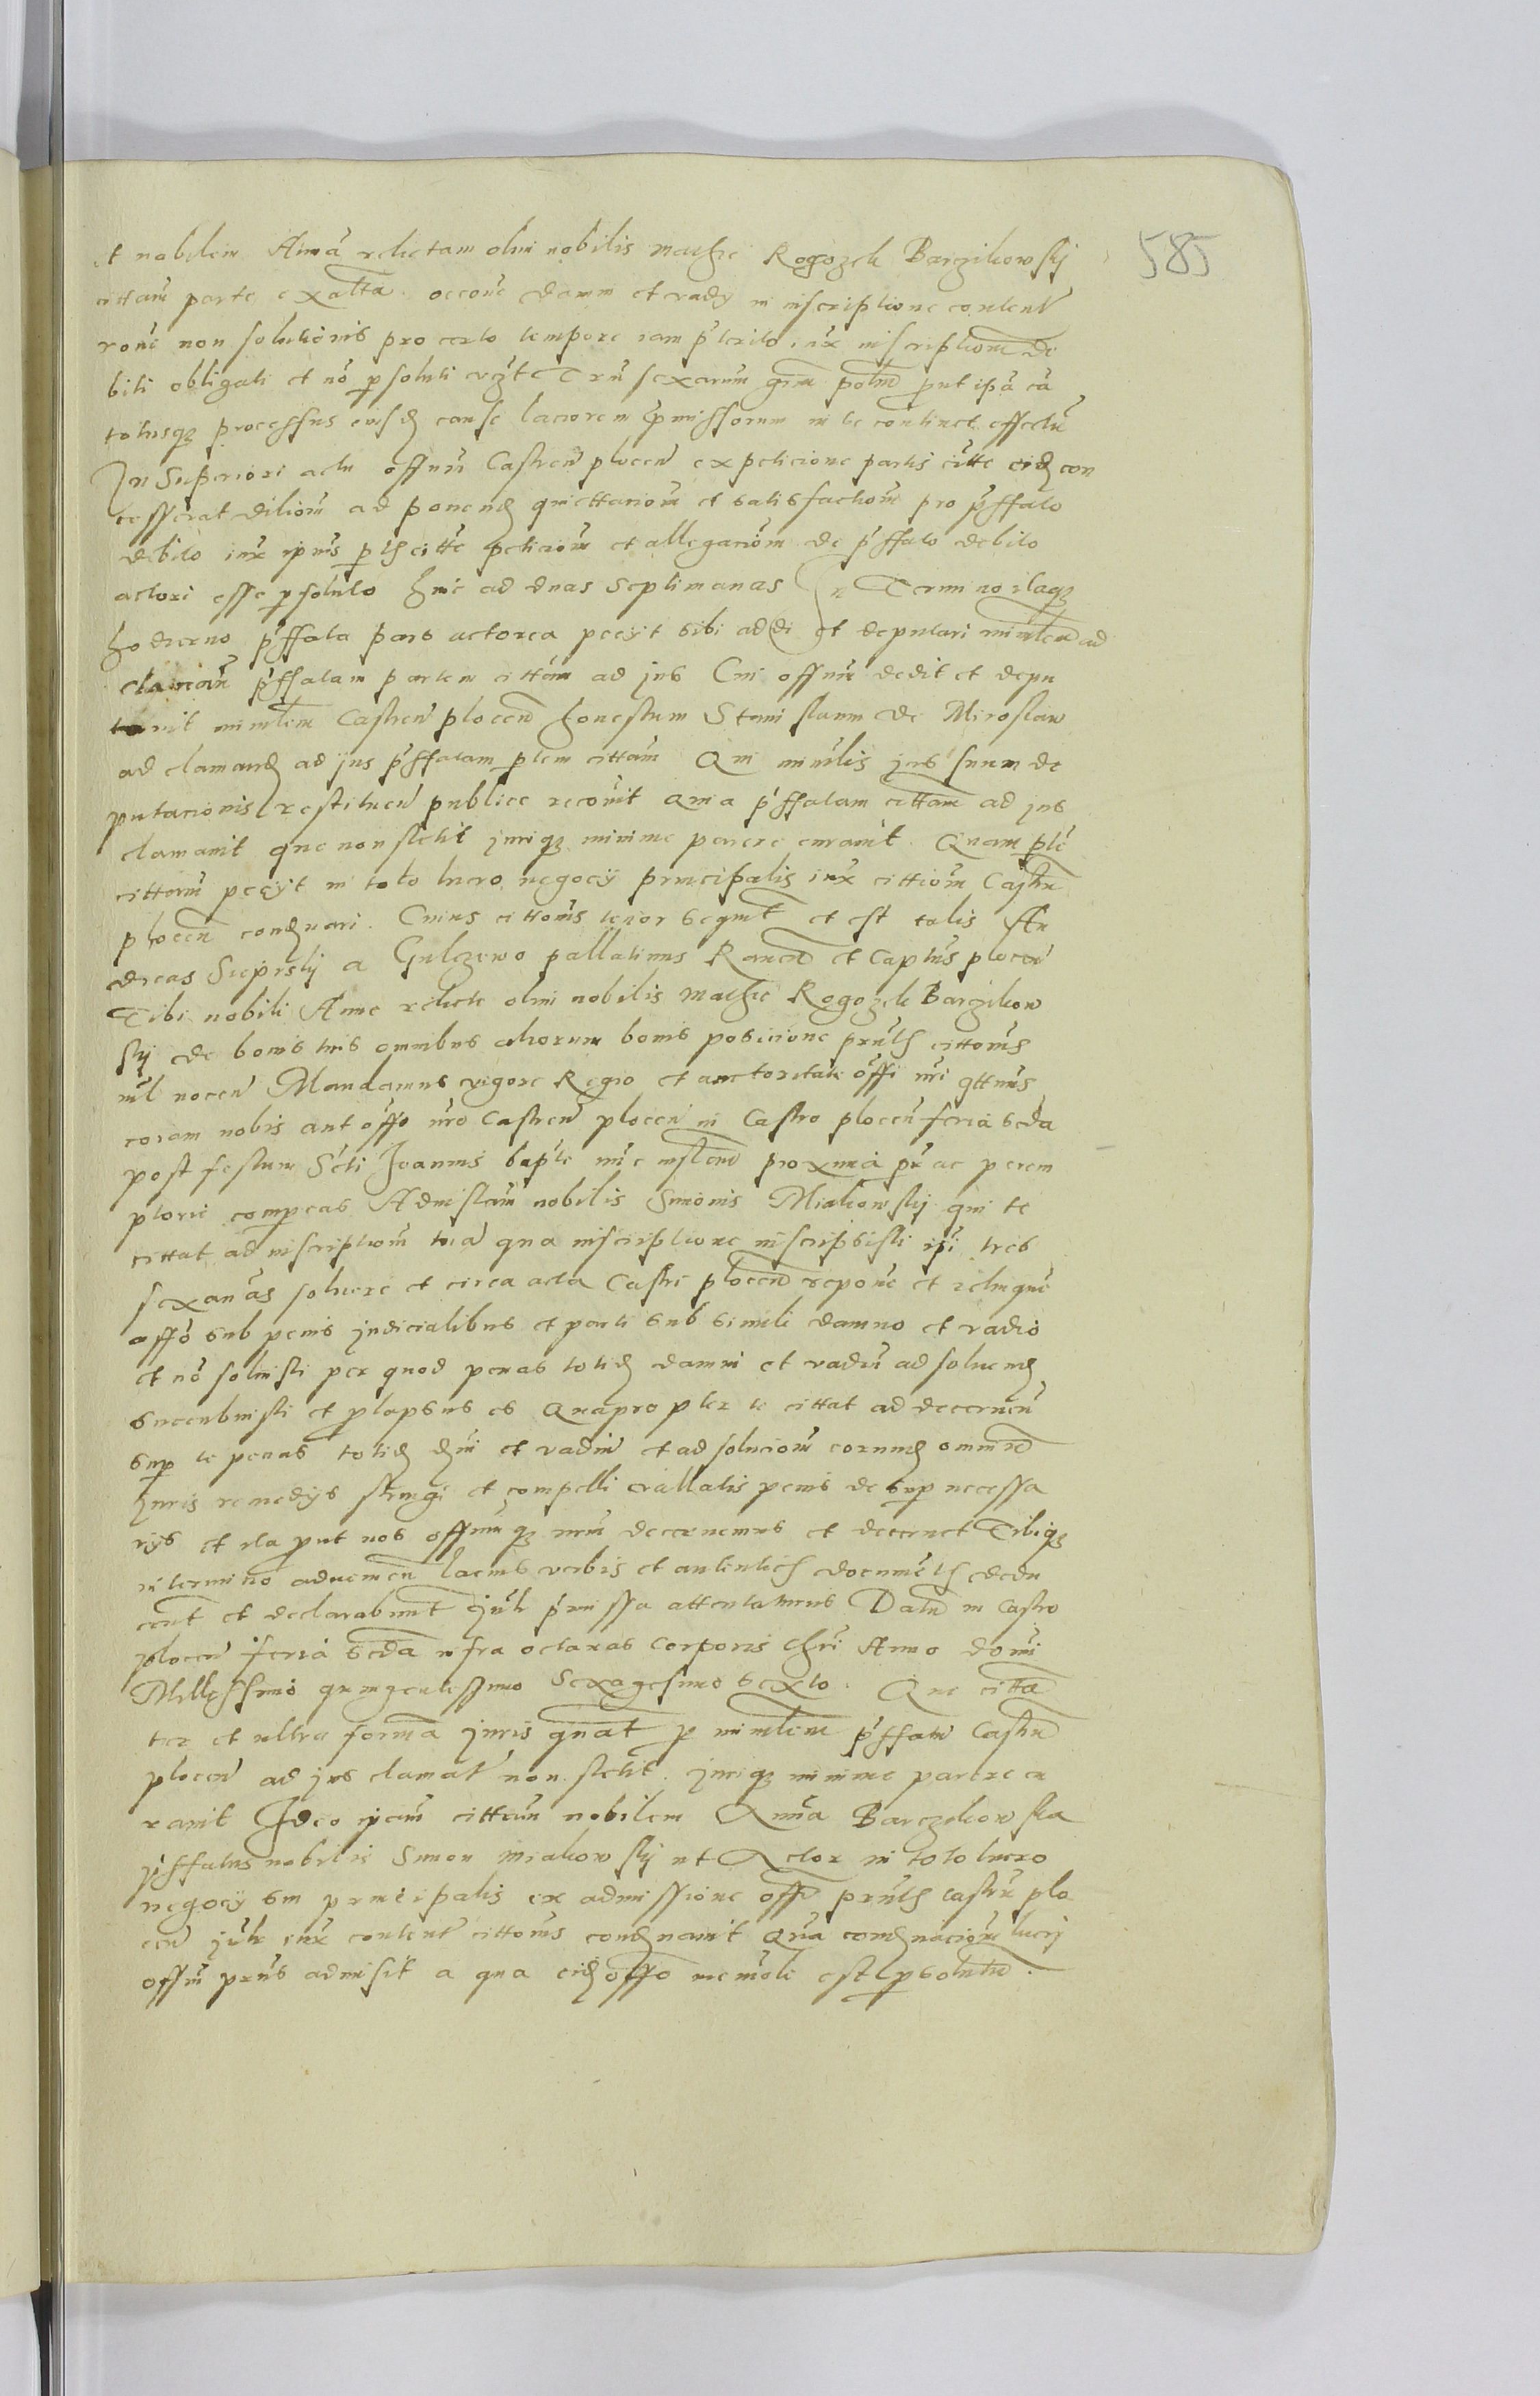 585
et nobilem Annã relictam olim nobilis Mathie Rogozek Barczikowskij
cittatã parte ex altta occõne damni et vadij in inscriptione content
rõne non solutionis pro certo tempore iam p̃terito iux inscriptionẽ de
biti obligati et nõ p soluti vczt Triũ sexarum grm̃ polm̃ prout ipã cã
totusqз processus eiusdẽ cause laciorem p̃missorum in se continet effectũ
In Superiori actu offiũ Castren̄ plocen̄ ex peticione partis citte eidẽ con
cesserat dilõm ad ponendẽ quiettaciõm et satisfactiõm pro p̃ffato
debito iux ipius ptis citte peticiõm et allegaciõm de p̃ffato debito
actori esse p soluto hinc ad duas septimanas In Termino itaqз
hodierno p̃ffata pars actorea peciit sibi addi et deputari min̄lem ad
clamandũ p̃ffatam partem cittãm ad jus Cui offiũ dedit et depu
tauit min̄lem Castren̄ plocen̄ honestum Stanislaum de Miroslaw
ad clamandẽ ad jus p̃ffatam ptem cittãm Qui min̄lis jus suum de
putacionis restituen̄ publice recõuit quia p̃ffatam cittãm ad jus
clamauit que non stetit juriqз minime parere curauit Quam pte
cittãm peciit in toto lucro negocij principalis iux cittiõm Castrn̄
plocen̄ condẽnari. Cuius cittõnis tenor sequit et est talis An
dreas Sieprskij a Gulczewo pallatinus Rawen̄ et Captus plocen̄
Tibi nobili Anne relicte olim nobilis Mathie Rogozek Barczikow
skij de bonis tuis omnibus aliorum bonis posicione prñtis cittõnis
nil nocen̄ Mandamus vigore Regio et auctoritate offi nri qttinus
coram nobis aut offo nro Castren̄ plocen̄ in Castro plocen̄ feria scda
post festum Scti Joannis bapte nũc instan̄ proxima pñr ac perem
ptorie compareas Ad instãm nobilis Simonis Miakowskij qui te
cittat ad inscriptiõm tuã qua inscriptione inscripsisti ipi tres
sexanãs soluere et circa acta Castri plocen̄ reponẽ et relinquẽ
offo sub penis judicialibus et parti sub simili damno et vadio
et nõ soluisti per quod penas totidẽ damni et vadiũ ad soluendẽ
succubuisti et p lapsus es Quapropter te cittat ad decernen̄
sup te penas totidẽ dm̃ et vadiũ et ad soluciõm eorundẽ omniũ
Juris remedijs stringi et compelli vallatis penis desup necessa
rijs et ita prout nos offiumqз nrũm decernemus et decernet Tibiqз
in termino aduenien̄ lacius verbis et autenticis documẽtis dedu
cent et declarabunt Juñ p̃missa attentaturus Datũ in Castro
plocen̄ feria scda infra octauas Corporis Chri Anno domi
Millessimo quingentessimo Sexagesimo sexto. Que citta
ter et ultra forma juris quat p min̄lem p̃ffatũ Castrn̄
plocen̄ ad jus clamat non stetit juriqз minime parere cu
rauit Ideo ipam cittãm nobilem Anna Barczikowska
p̃ffatus nobilis Simon Miakowskij ut Actor in toto lucro
negocij sui principalis ex admissione offi prñtis castrn̄ plo
cen̄ juñ iux content cittõnis condẽnauit Qua condẽnaciõm lucrj
offiũ prñs admisit a qua eidẽ offo memole est p solutũ.